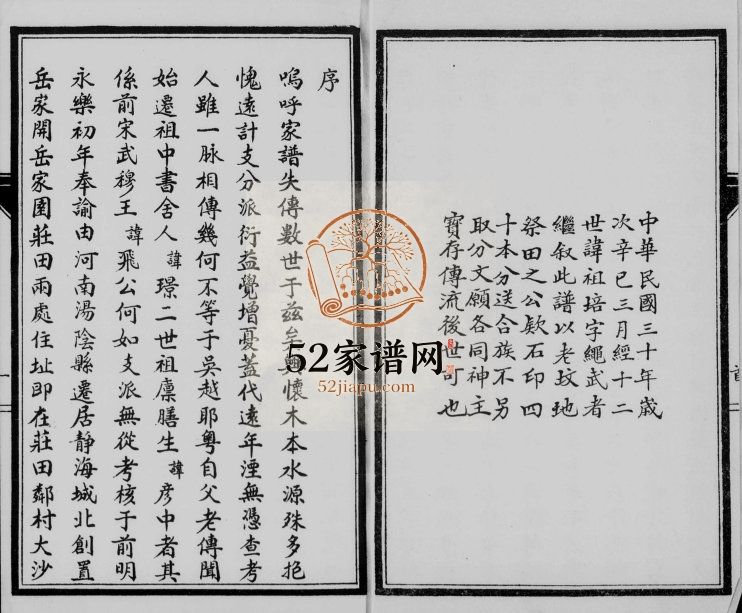 中華民國三十年歲
次辛巳三月經十二
世諱祖培字繩武者
繼叙此譜以老坟地
祭田之公欵石印四
十本分送合族不另
取分文願各同神主
寶存傳流後世可也
序
嗚呼家譜失傳數世于兹矣懷木本水源殊多抱
愧遠計支分派衍益覺增憂蓋代遠年湮無憑查考
人雖一脉相傳幾何不等于吳越耶粤自父老傳聞
始遷祖中書舍人諱璟二世祖廪膳生諱彦中者其
係前宋武穆王諱飛公何如支派無從考核于前明
永樂初年奉諭由河南湯陰縣遷居静海城北創置
岳家開岳家園莊田兩處住址即在莊田鄰村大沙
52家谱网
52jiapu.com